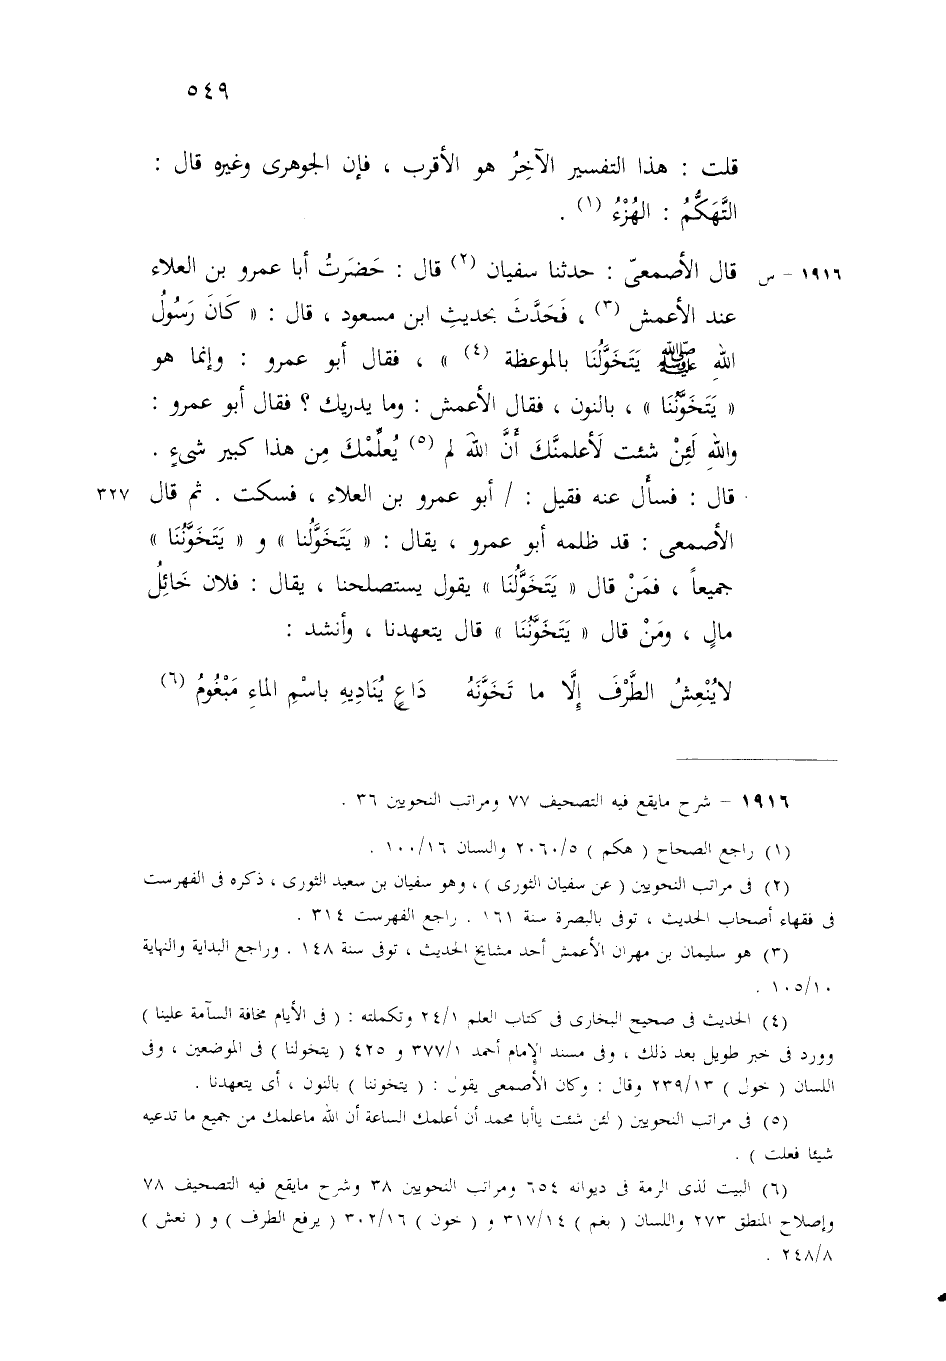 ٥٤٩
قلت : هذا التفسير الآخِرُ هو الأقرب ، فإن الجوهرى وغيره قال :
التَّهَكُّمُ : الهُزْءُ (١) .
١٩١٦ – س قال الأصمعىّ : حدثنا سفيان (٢) قال : حَضَرتُ أبا عمرو بن العلاء
عند الأعمش (٣) ، فَحَدَّثَ بحديثِ ابن مسعود ، قال : « كَانَ رَسُولُ
اللهِ ﷺ يَتَخَوَّلُنَا بالموعظة (٤) » ، فقال أبو عمرو : وإنما هو
« يَتَخَوَّنُنَا » ، بالنون ، فقال الأعمش : وما يدريك ؟ فقال أبو عمرو :
واللهِ لَئِنْ شئت لَأعلمنَّكَ أَنَّ اللهَ لم (٥) يُعلِّمْكَ مِن هذا كبير شىءٍ .
قال : فسأل عنه فقيل : / أبو عمرو بن العلاء ، فسكت . ثم قال ٣٢٧
الأصمعى : قد ظلمه أبو عمرو ، يقال : « يَتَخَوَّلُنا » و « يَتَخَوَّنُنَا »
جميعاً ، فمَنْ قال « يَتَخَوَّلُنَا » يقول يستصلحنا ، يقال : فلان خَائِلُ
مالٍ ، ومَنْ قال « يَتَخَوَّنُنَا » قال يتعهدنا ، وأنشد :
لايُنْعِشُ الطَّرْفَ إِلَّا ما تَخَوَّنَهُ دَاعٍ يُنَادِيهِ باسْمِ الماءِ مَبْغُومُ (٦)
١٩١٦ – شرح مايقع فيه التصحيف ٧٧ ومراتب النحويين ٣٦ .
(١) راجع الصحاح ( هكم ) ٢٠٦٠/٥ واللسان ١٠٠/١٦ .
(٢) فى مراتب النحويين ( عن سفيان الثورى ) ، وهو سفيان بن سعيد الثورى ، ذكره فى الفهرست
فى فقهاء أصحاب الحديث ، توفى بالبصرة سنة ١٦١ . راجع الفهرست ٣١٤ .
(٣) هو سليمان بن مهران الأعمش أحد مشايخ الحديث ، توفى سنة ١٤٨ . وراجع البداية والنهاية
١٠٥/١٠ .
(٤) الحديث فى صحيح البخارى فى كتاب العلم ٢٤/١ وتكملته : ( فى الأيام مخافة السآمة علينا )
وورد فى خبر طويل بعد ذلك ، وفى مسند الإمام أحمد ٣٧٧/١ و ٤٢٥ ( يتخولنا ) فى الموضعين ، وفى
اللسان ( خول ) ٢٣٩/١٣ وقال : وكان الأصمعى يقول : ( يتخوننا ) بالنون ، أى يتعهدنا .
(٥) فى مراتب النحويين ( لئن شئت ياأبا محمد أن أعلمك الساعة أن الله ماعلمك من جميع ما تدعيه
شيئا فعلت ) .
(٦) البيت لذى الرمة فى ديوانه ٦٥٤ ومراتب النحويين ٣٨ وشرح مايقع فيه التصحيف ٧٨
وإصلاح المنطق ٢٧٣ واللسان ( بغم ) ٣١٧/١٤ و ( خون ) ٣٠٢/١٦ ( يرفع الطرف ) و ( نعش )
٢٤٨/٨ .